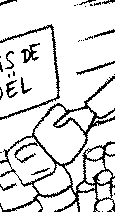 S DE
ËL